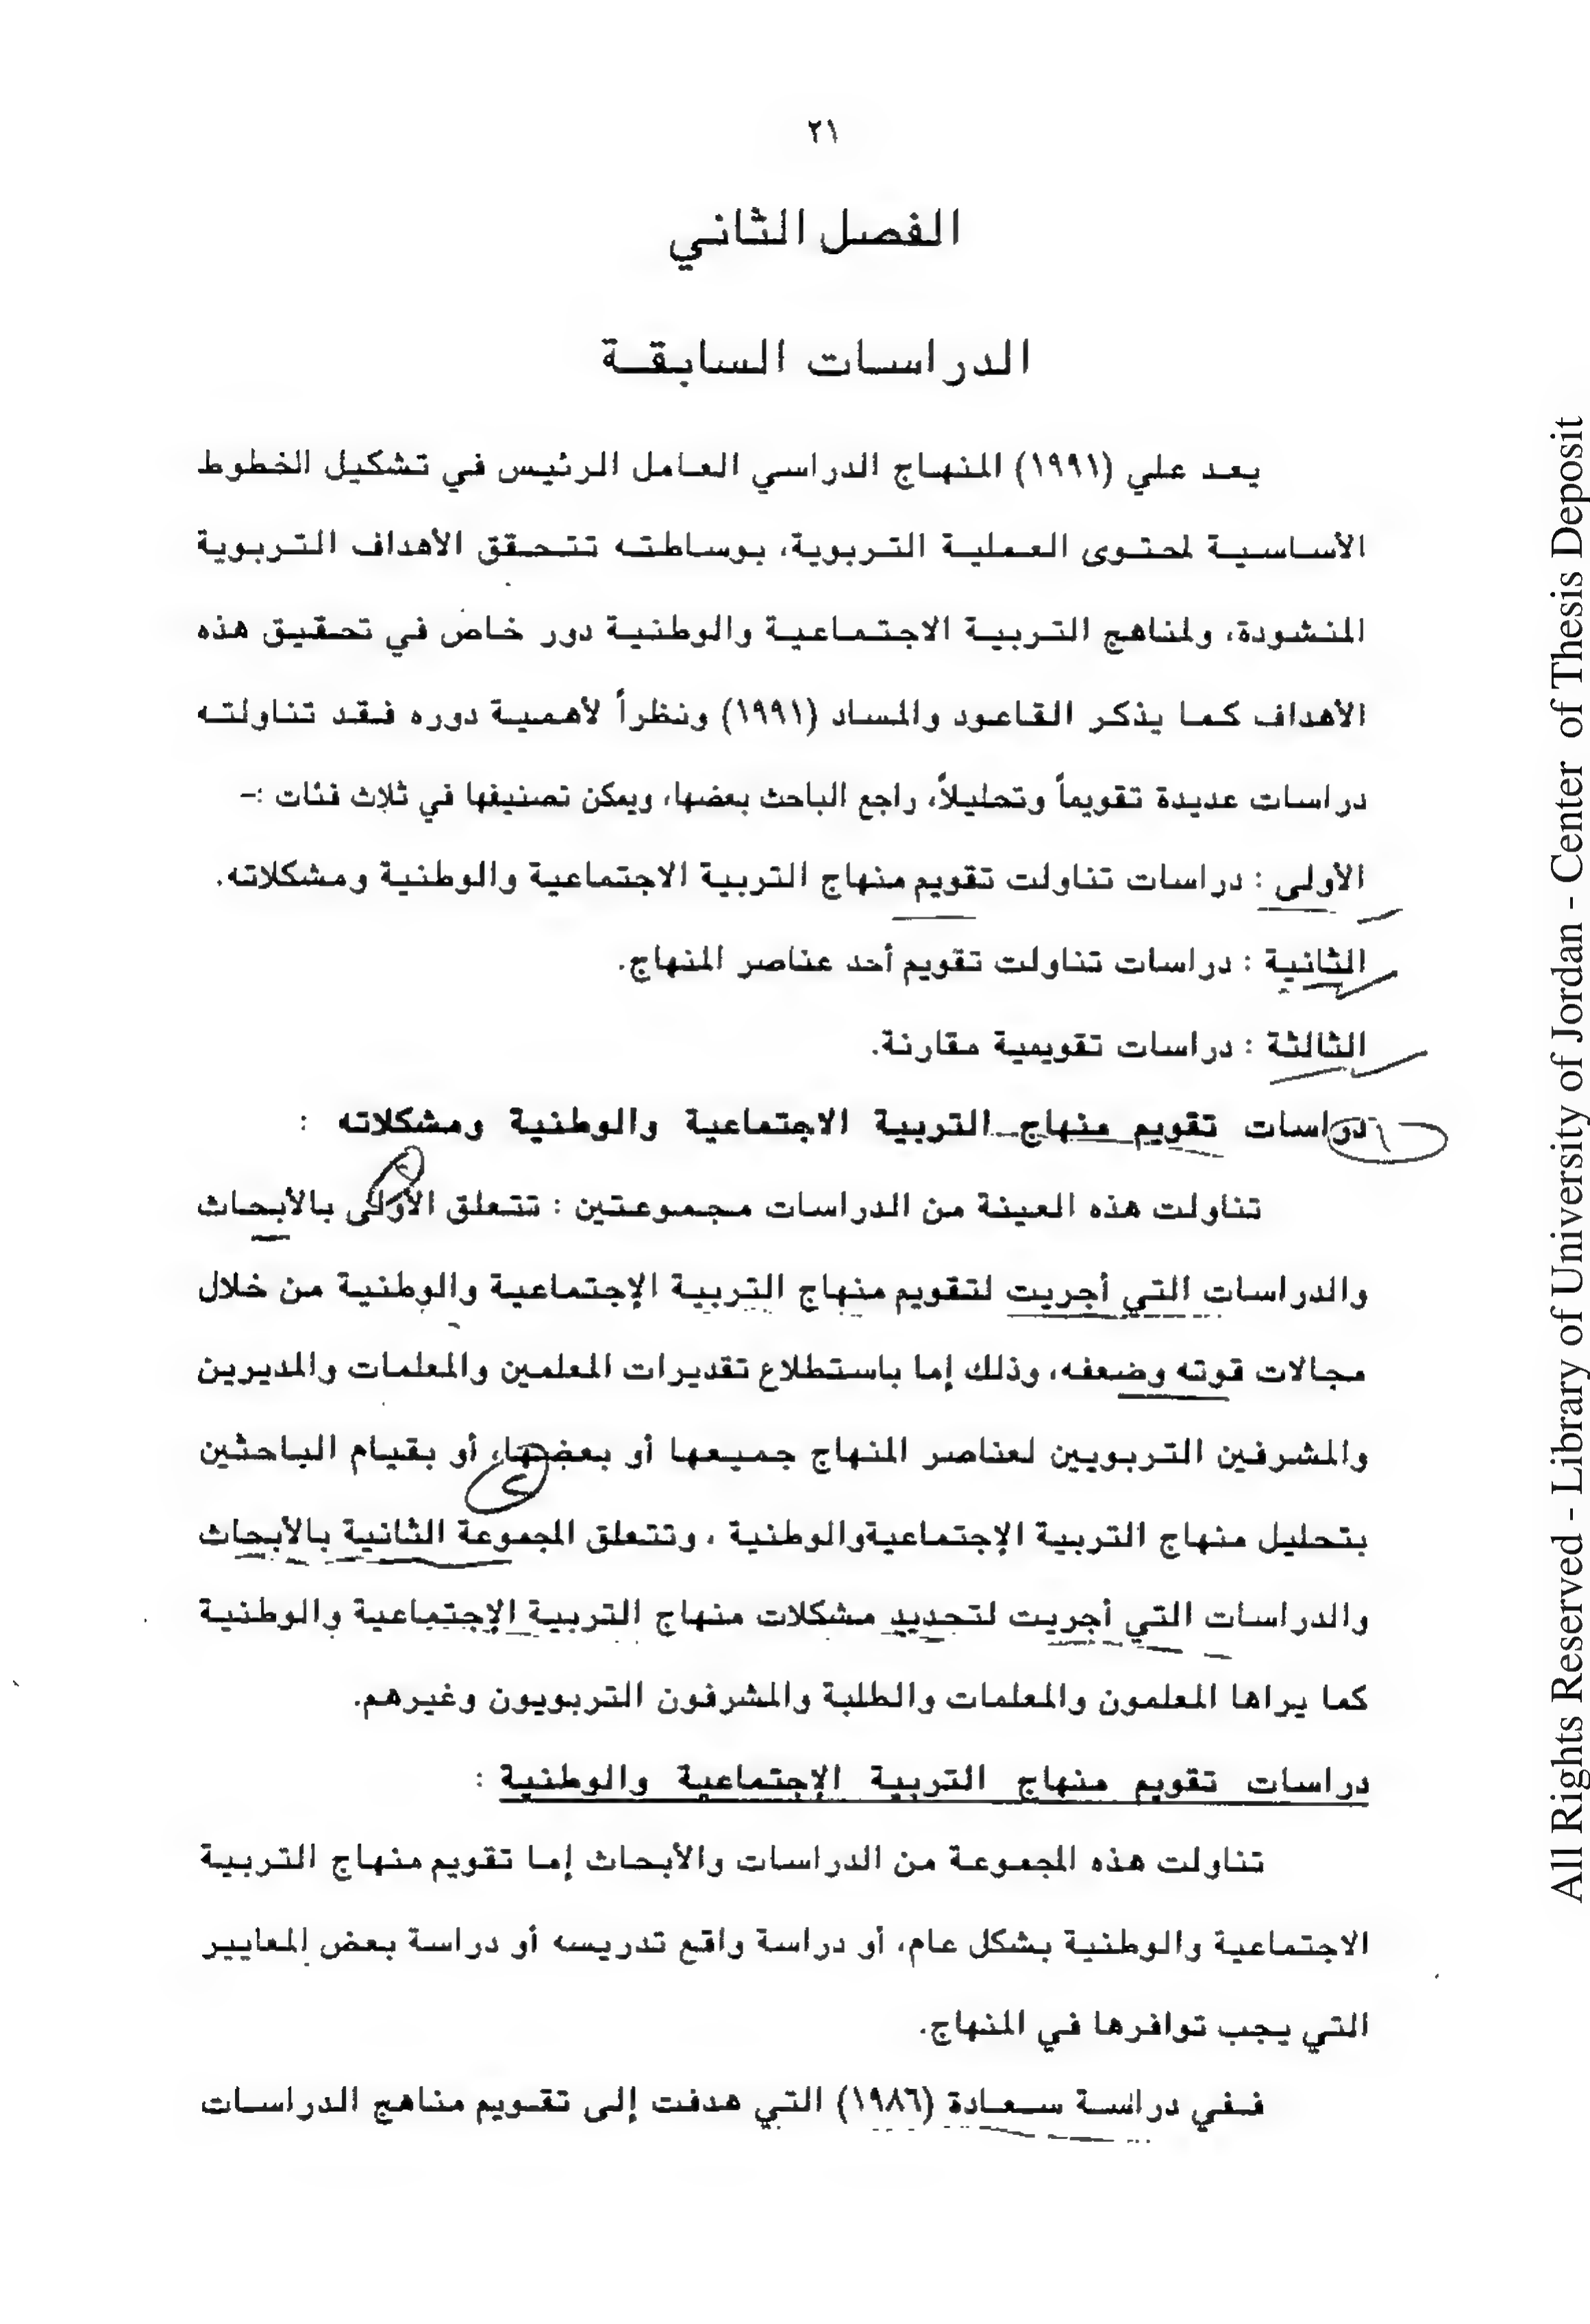 ٢١
الفصل الثاني
الدراسات السابقة
يعد علي (١٩٩١) المنهاج الدراسي العامل الرئيس في تشكيل الخطوط
الأساسية لمحتوى العملية التربوية، بوساطته تتحقق الأهداف التربوية
المنشودة، ولمناهج التربية الاجتماعية والوطنية دور خاص في تحقيق هذه
الأهداف كما يذكر القاعود والمساد (١٩٩١) ونظراً لأهمية دوره فقد تناولته
دراسات عديدة تقويماً وتحليلاً، راجع الباحث بعضها، ويمكن تصنيفها في ثلاث فئات :-
الأولى : دراسات تناولت تقويم منهاج التربية الاجتماعية والوطنية ومشكلاته.
الثانية : دراسات تناولت تقويم أحد عناصر المنهاج.
الثالثة : دراسات تقويمية مقارنة.
دراسات تقويم منهاج التربية الاجتماعية والوطنية ومشكلاته :
تناولت هذه العينة من الدراسات مجموعتين : تتعلق الأولى بالأبحاث
والدراسات التي أجريت لتقويم منهاج التربية الإجتماعية والوطنية من خلال
مجالات قوته وضعفه، وذلك إما باستطلاع تقديرات المعلمين والمعلمات والمديرين
والمشرفين التربويين لعناصر المنهاج جميعها أو بعضها، أو بقيام الباحثين
بتحليل منهاج التربية الإجتماعيةوالوطنية ، وتتعلق المجموعة الثانية بالأبحاث
والدراسات التي أجريت لتحديد مشكلات منهاج التربية الإجتماعية والوطنية
كما يراها المعلمون والمعلمات والطلبة والمشرفون التربويون وغيرهم.
دراسات تقويم منهاج التربية الإجتماعية والوطنية :
تناولت هذه المجموعة من الدراسات والأبحاث إما تقويم منهاج التربية
الاجتماعية والوطنية بشكل عام، أو دراسة واقع تدريسه أو دراسة بعض المعايير
التي يجب توافرها في المنهاج.
ففي دراسة سعادة (١٩٨٦) التي هدفت إلى تقويم مناهج الدراسات
All Rights Reserved - Library of University of Jordan - Center of Thesis Deposit